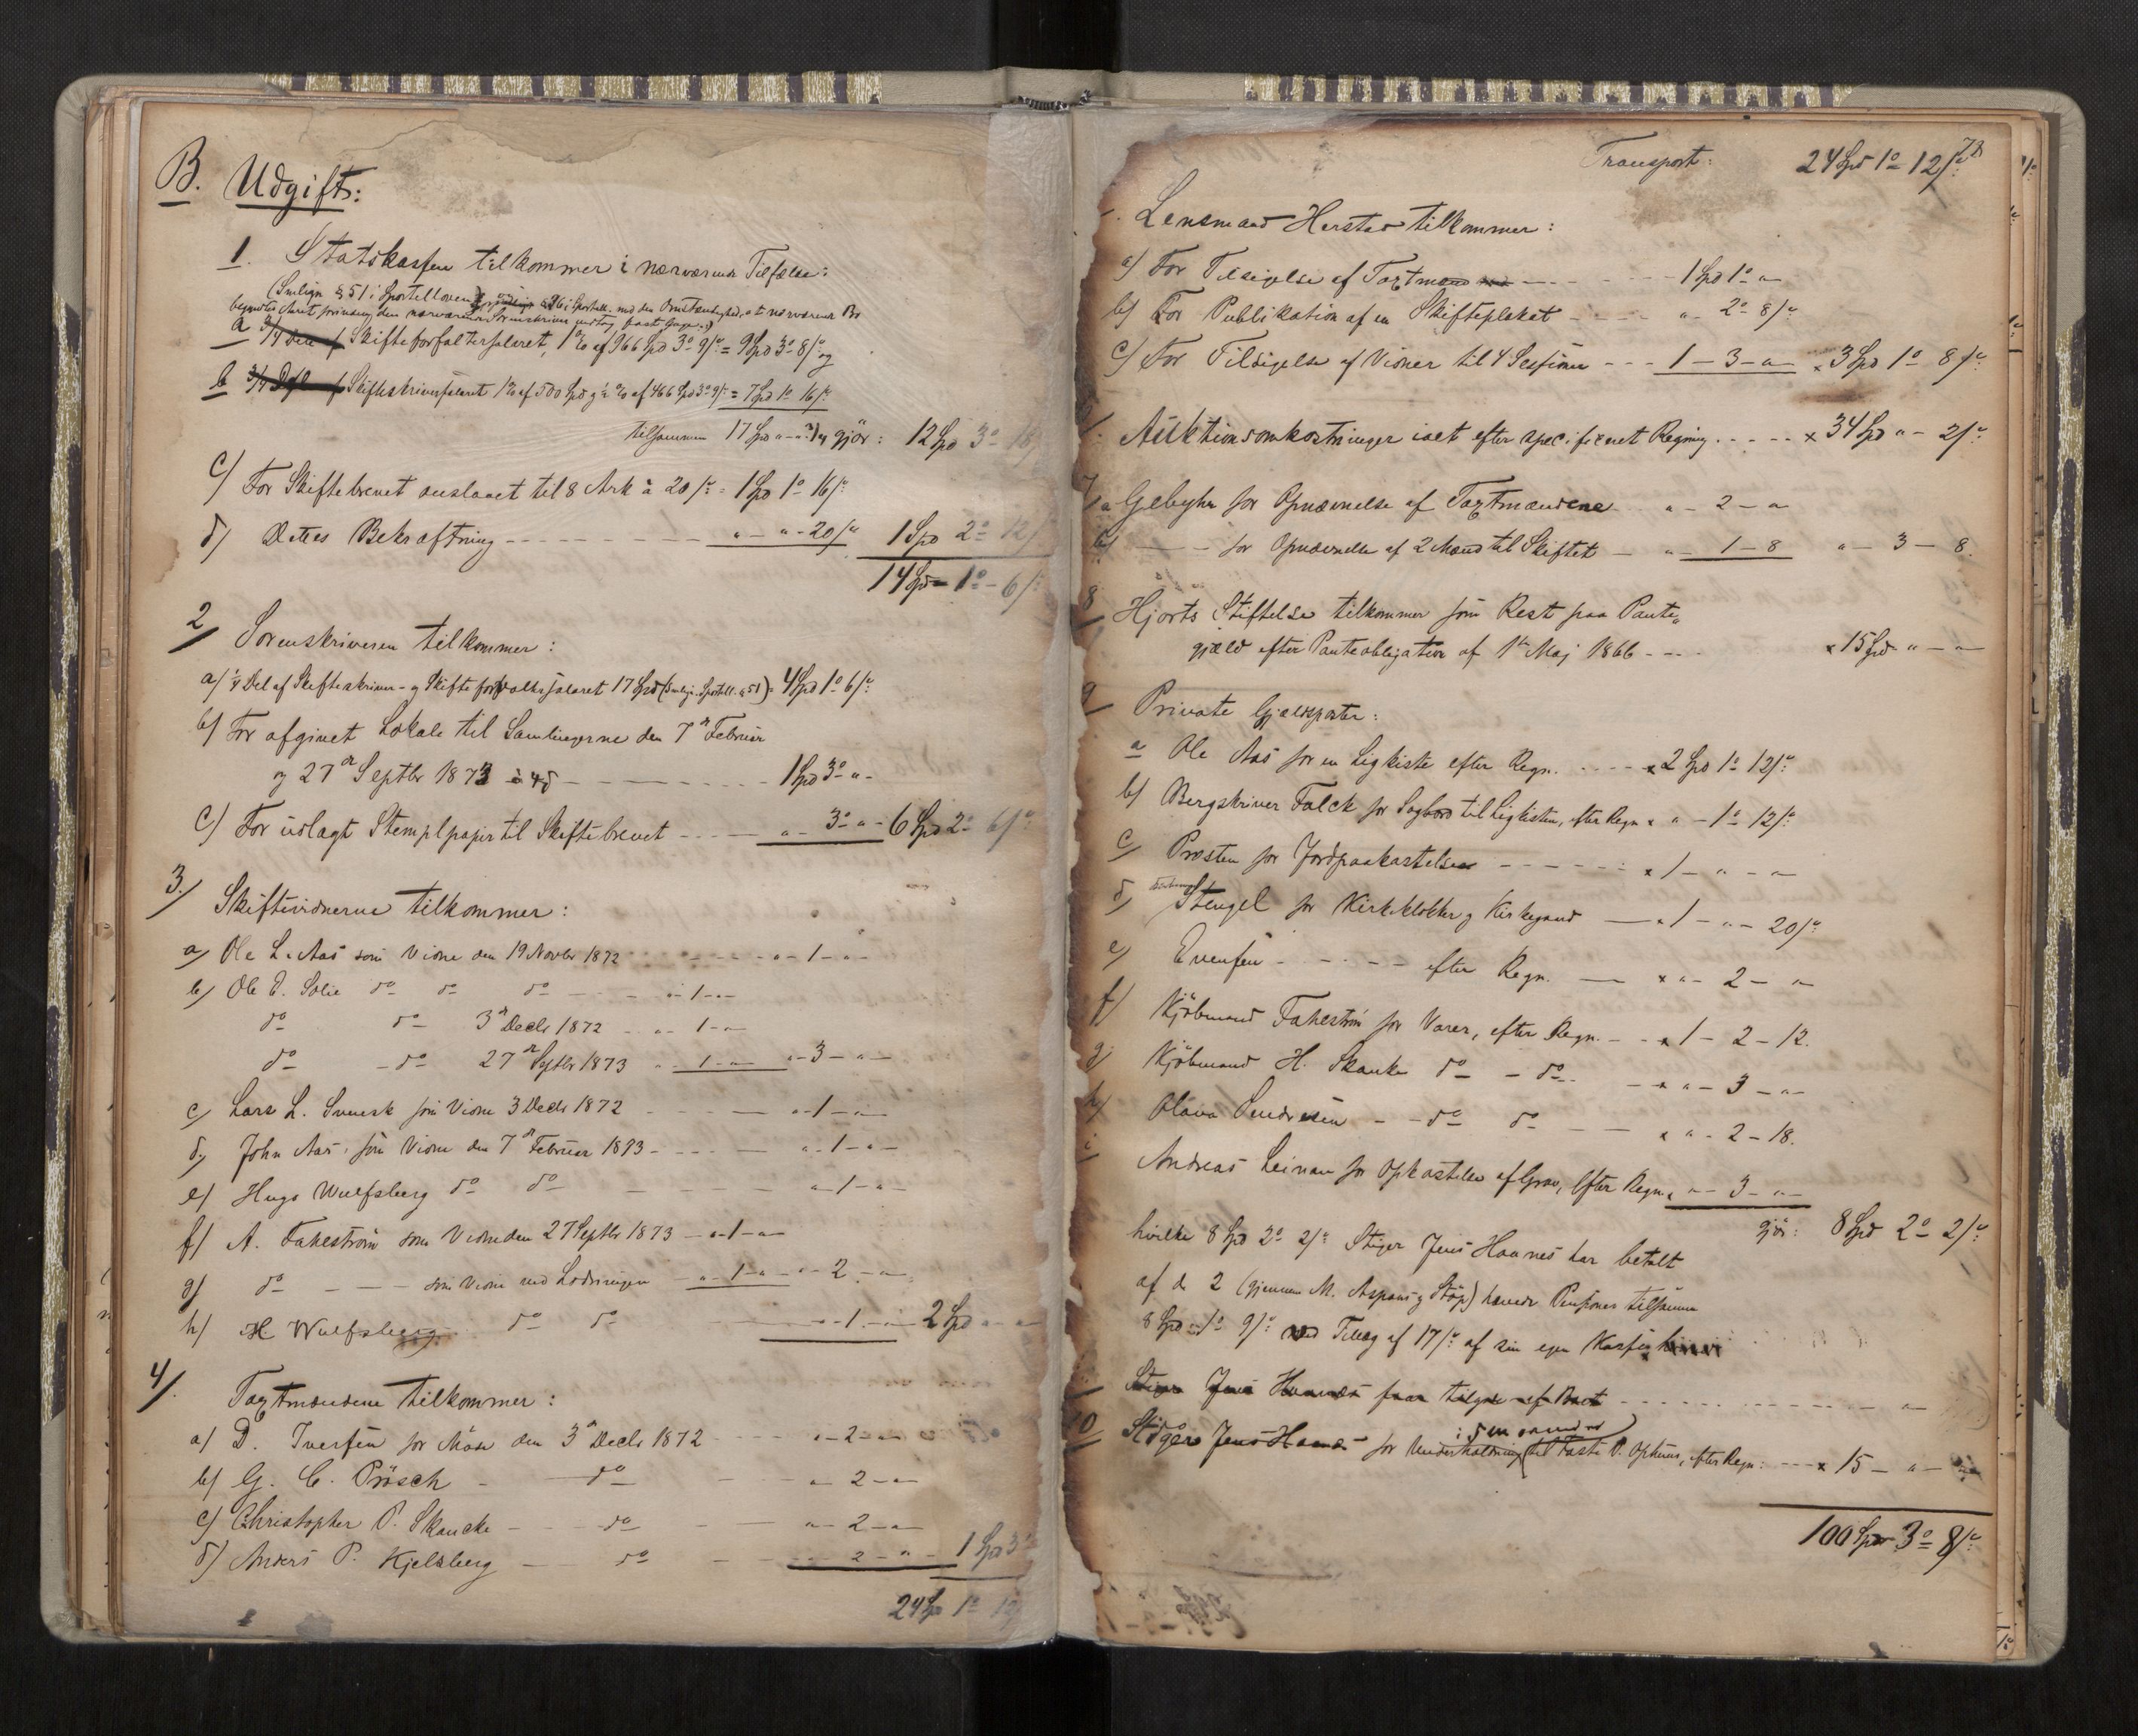 B. Udgift:
1. Statskassen tilkommer i nærværende Tilfælde:
(Smlign § 51 i Sportelloven § 36 i Sportell. med den Omstændighed, at nærværende Bo
a Skifteforfaltersalaret, 1 % af 966 Spd 3 o 9 s = 9 Spd 3 o 8 s og
b Skifteskriversalaret 1 % af 500 Spd og ½ % af 466 Spd 3 o 9 s = 7 Spd 1 o 16 s
tilsammen 17 Spd " - " ¾ gjør: 12 Spd 3 o 18
c) For Skiftebrevet anslaaet til 8 Ark à 20 s = 1 Spd 1 o 16 s
d) Dettes Bekræftning - - - " - " - 20 s 1 Spd 2 o 12 s
14 Spd - 1 o - 6 s
2/ Sorenskriveren tilkommer:
a) ¼ Del af Skifteskriver- og Skifteforvaltersalaret 17 Spd (Smlgn. Sportell. § 51) = 4 Spd 1 o 6 s
b) For afgivet Lokale til Samlingerne den 7 de Februar
og 27 de Septbr 1873 à 4 o - - - 1 Spd 3 o " -
c) For udlagt Stemplpapir til Skiftebrevet - - - " - 3 o " - 6 Spd 2 o 6 s
3./ Skiftevidnerne tilkommer:
a) Ole L. Aas som Vidne den 19 Novbr 1872 - - - " - 1 - " -
b) Ole E. Solie do do do - - - " - 1 - "
do do 3 de Decbr 1872 - " - 1 - "
do - do 27 de Septbr 1873 " - 1 - " " - 3 - " -
c) Lars L. Svensk som Vidne 3 Decbr 1872 - - - " - 1 - "
d) John Aas som Vidne den 7 de Februar 1873 - - - " - 1 - " -
e) Hugo Wulfsberg do do - - - " - 1 - " -
f) A. Fahestrøm som Vidne den 27 Septbr 1873 - " - 1 - "
g) do - - - som Vidne ved Lodningen - " - 1 - " " - 2 - "
h) H Wulfsberg do do " - 1 - " 2 Spd " - "
4/. Taxtmændene tilkommer:
a) D. Iversen for Møde den 3 de Decbr 1872 " - 2 - "
b) G. C. Prøsch - do - " - 2 - "
c) Christopher P. Skancke - - do - " - 2 - "
d) Anders P. Kjelsberg - do - - 2 - " - 1 Spd 3 o
24 Spd 1 o 12
78
Transport: 24 Spd 1 o 12 s
Lensmand Harstad tilkommer:
a) For Tilsigelse af Taxtmænd - - - 1 Spd 1 o "
b) For Publikation af en Skifteplakat - - - " - 2 o 8 s
c) For Tilsigelse af Vidner til 4 Sessioner - - - 1 - 3 - " x 3 Spd 1 o 8 s
Auktionsomkostninger iaet efter specificeret Regning . . . . x 34 Spd " - 2 s
7/ a Gebyhr for Opnævnelse af Taxtmændene " - 2 - "
b) - - for Opnævnelse af 2 Mænd til Skiftet - " - 1 - 8 " - 3 - 8.
8/ Hjorts Stiftelse tilkommer som Rest paa Pante-
gjæld efter Panteobligation af 1ste Maj 1866 - - - x 15 Spd " - "
9/ Private Gjældsposter:
a Ole Aas for en Ligkiste efter Regn. - - - x 2 Spd 1 o 12 s
b) Bergskriver Falck for Sagbord til Ligkisten, efter Regn x " - 1 o 12 s
c) Presten for Jordpaakastelse - - - x 1 - " - "
d) Stengel for Kirkeklokker og Kirkegaard - x 1 - " - 20 s
e) Evensen - - - efter Regn. - x " - 2 - "
f) Kjøbmand Fahestrøm for Varer, efter Regn. - - x 1 - 2 - 12.
g) Kjøbmand H. Skanke do - do - - x " - 3 - "
h) Olava Sendresen - - do do - - x " - 2 - 18.
i Andreas Leinan for Opkastelse af Grav, efter Regn x " - 3 - "
gjør: 8 Spd 2 o 2 s
hvilke 8 Spd 2 o 2 s Stiger Jens Haanes har betalt
af de 2 (gjennem M. Aspaas og Støp) hævede Pensioner tilsammen
8 Spd 1 o 9 s med Tillæg af 17 s af sin egen Kasse
Stiger Jens Haanæs faar tilgode af Boet - - - "
10/ Stiger Jens Hanæs for Underholdning i 5 Maaneder til P. Ophuus, efter Regn: - - x 15 - " - "
100 Spd 3 o 8 s